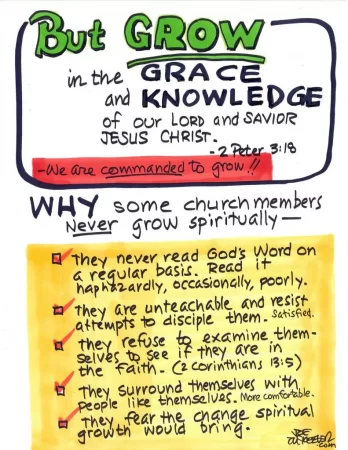 But GROW
in the GRACE
and KNOWLEDGE
of our LORD and SAVIOR
JESUS CHRIST.
- 2 Peter 3:18
- We are commanded to grow!!
WHY some church members
Never grow spiritually —
they never read God's Word on
a regular basis. Read it
haphazzardly, occasionally, poorly.
They are unteachable and resist
attempts to disciple them. Satisfied.
they refuse to examine them-
selves to see if they are in
the faith. (2 Corinthians 13:5)
They surround themselves with
people like themselves. More comfortable.
They fear the change spiritual
growth would bring.
JOE
McKEEVER
.com